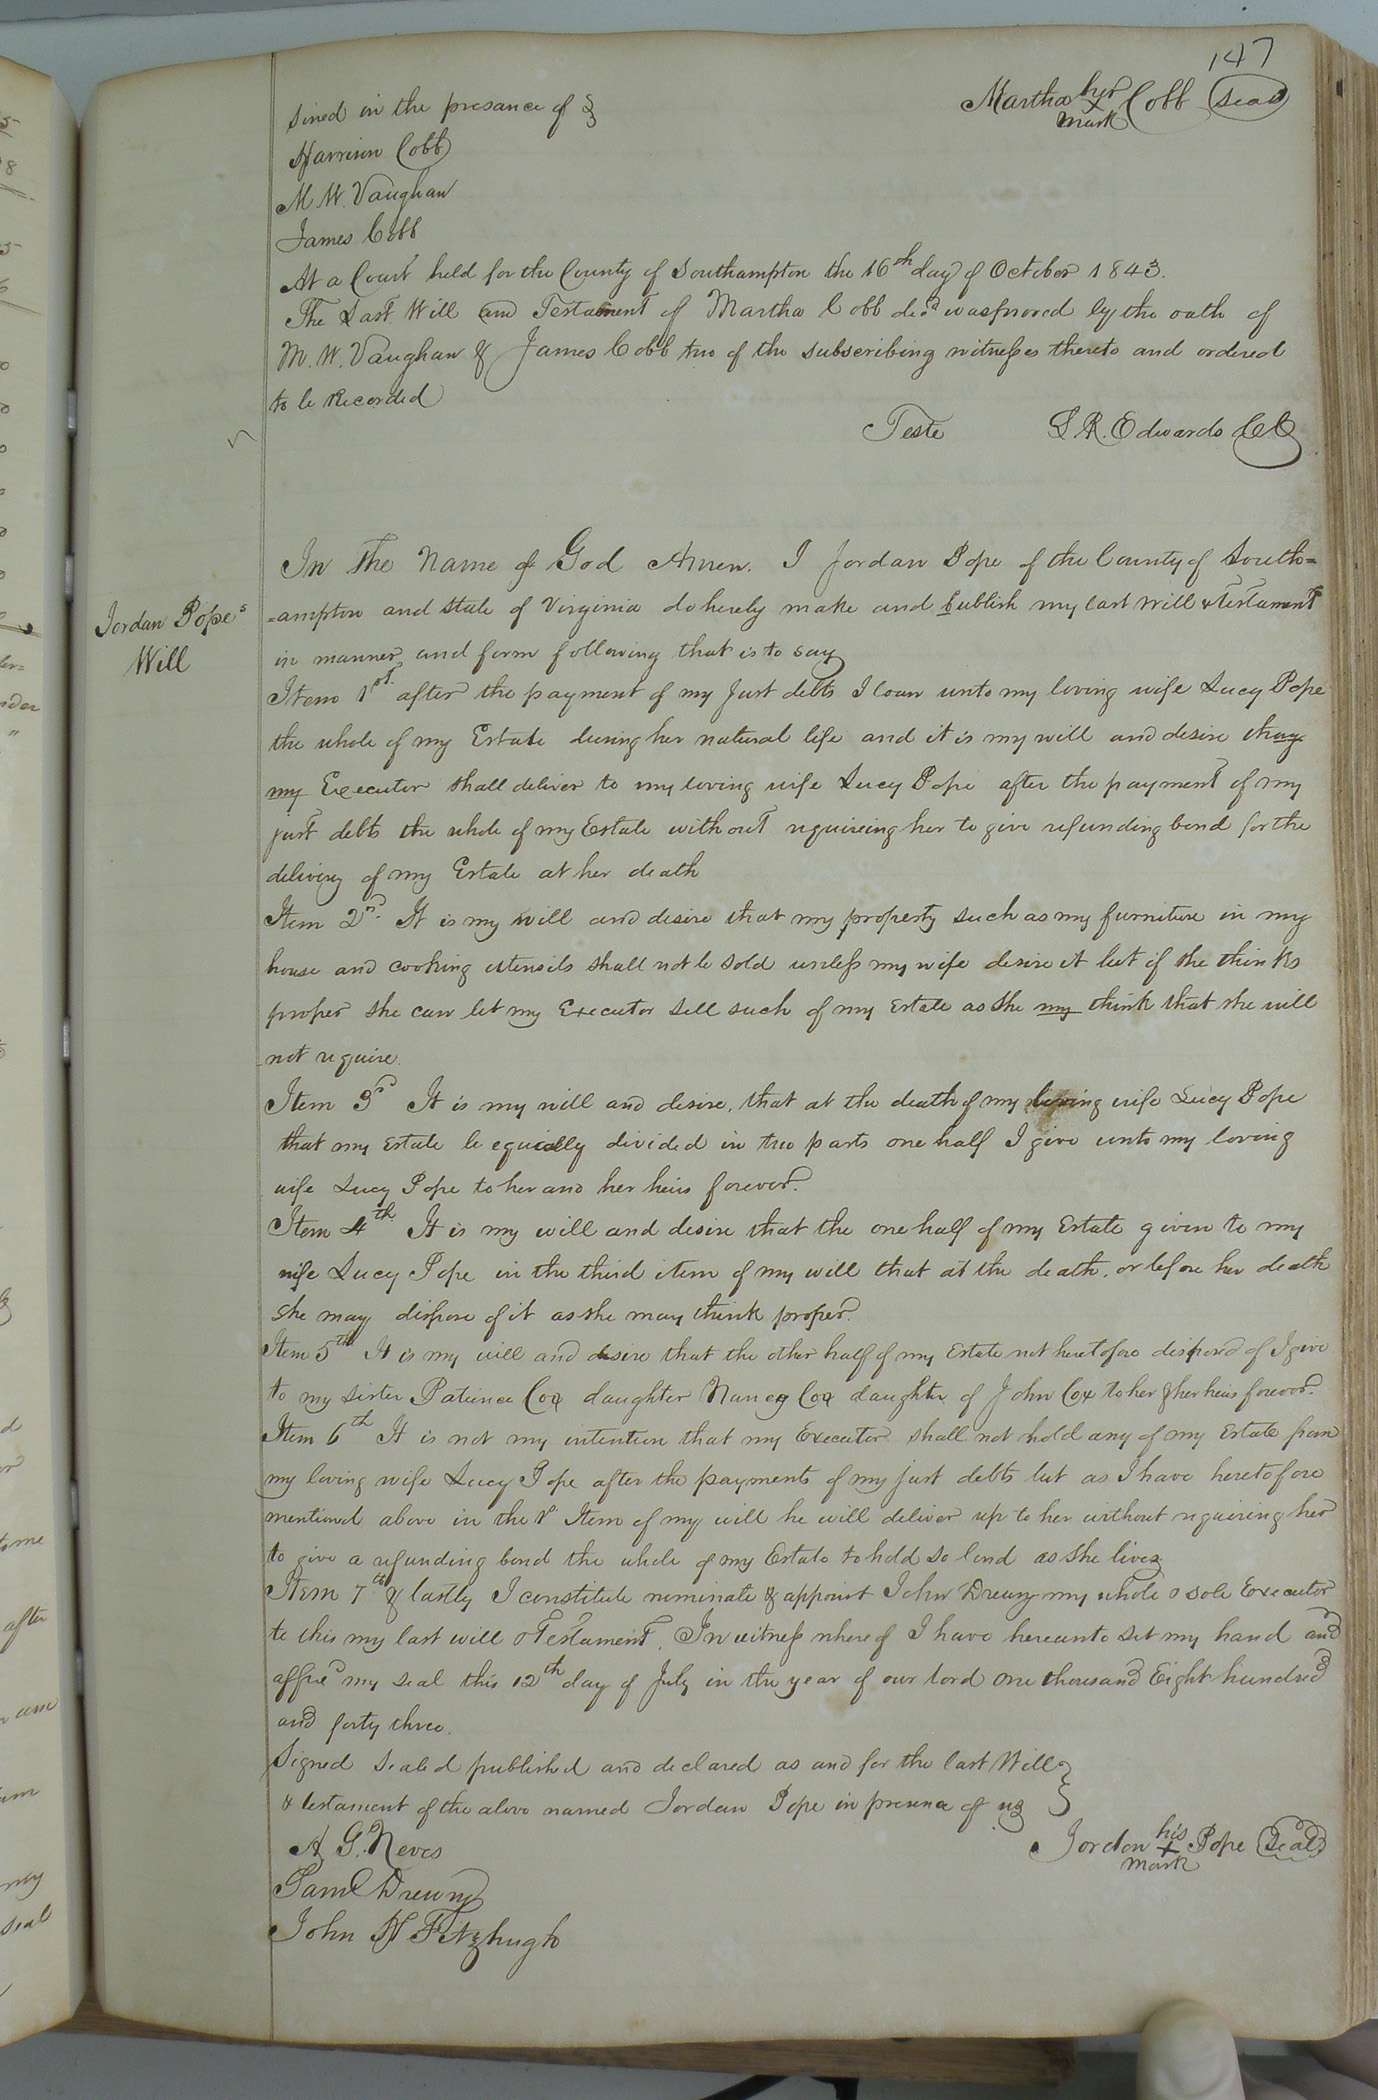 147
Martha her Cobb Seal
x
mark
Sined in the presance of
Harrison Cobb
M. W. Vaughan
James Cobb
At a Court held for the County of Southampton the 16th day of October 1843.
The Last Will and Testament of Martha Cobb decd was proved by the oath of
M. W. Vaughan & James Cobb two of the subscribing witnesses thereto and ordered
to be Recorded
Teste L. R. Edwards CC
Jordan Popes
Will
In The Name of God Amen. I Jordan Pope of the County of South=
=ampton and State of Virginia do hereby make and publish my last Will & Testament
in manner and form following that is to say
Item 1st. after the payment of my Just debts I loan unto my loving wife Lucy Pope
the whole of my Estate during her natural life and it is my will and desire thay
my Executor shall deliver to my loving wife Lucy Pope after the payment of my
just debts the whole of my Estate without requireing her to give refunding bond for the
delivery of my Estate at her death
Item 2nd. It is my will and desire that my property such as my furniture in my
house and cooking utensils shall not be sold unless my wife desire it but if she thinks
proper she can let my Executor sell such of my Estate as she my think that she will
not require.
Item 3d It is my will and desire, that at the death of my loving wife Lucy Pope
that my Estate be equially divided in two parts one half I give unto my loving
wife Lucy Pope to her and her heirs forever.
Item 4th It is my will and desire that the one half of my Estate given to my
wife Lucy Pope in the third item of my will that at the death, or before her death
She may dispose of it as she may think proper.
Item 5th It is my will and desire that the other half of my Estate not heretofore disposd of I give
to my sister Patience Cox daughter Nancy Cox daughter of John Cox to her & her heirs forever.
Item 6th It is not my intention that my Executor shall not hold any of my Estate from
my loving wife Lucy Pope after the payments of my just debts but as I have heretofore
mentioned above in the 1st Item of my will he will deliver up to her without requiring her
to give a refunding bond the whole of my Estate to hold so lond as she lives
Item 7th & lastly I constitute nominate & appoint John Drewry my whole & sole Executor
to this my last will & Testament. In witness whereof I have hereunto set my hand and
affixd my seal this 12th day of July in the year of our lord one thousand Eight hundred
and forty three.
Signed sealed published and declared as and for the last Will
& testament of the above named Jordan Pope in presence of us
Jordon his Pope Seal
x
mark
A. G. Neves
Saml Drewry
John H Fitzhugh